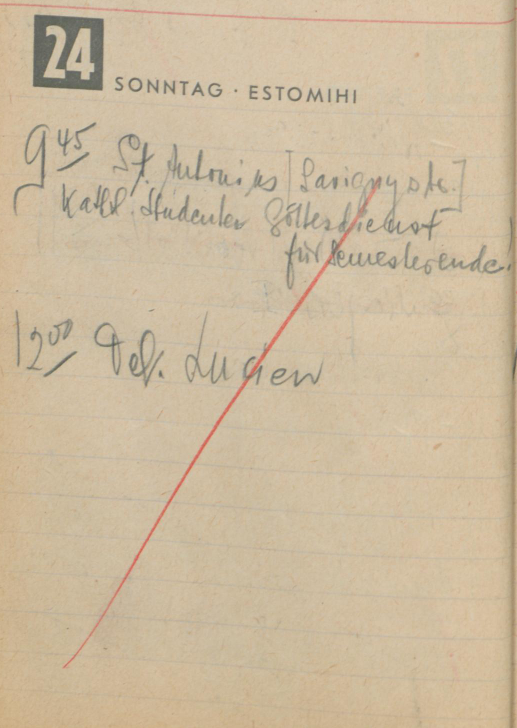 24
SONNTAG · ESTOMIHI
9 45 St. Antonius [Savignystr.]
(Kathl. Studenten Gottesdienst
für Semesterende)
12 00 Tel. Lucien